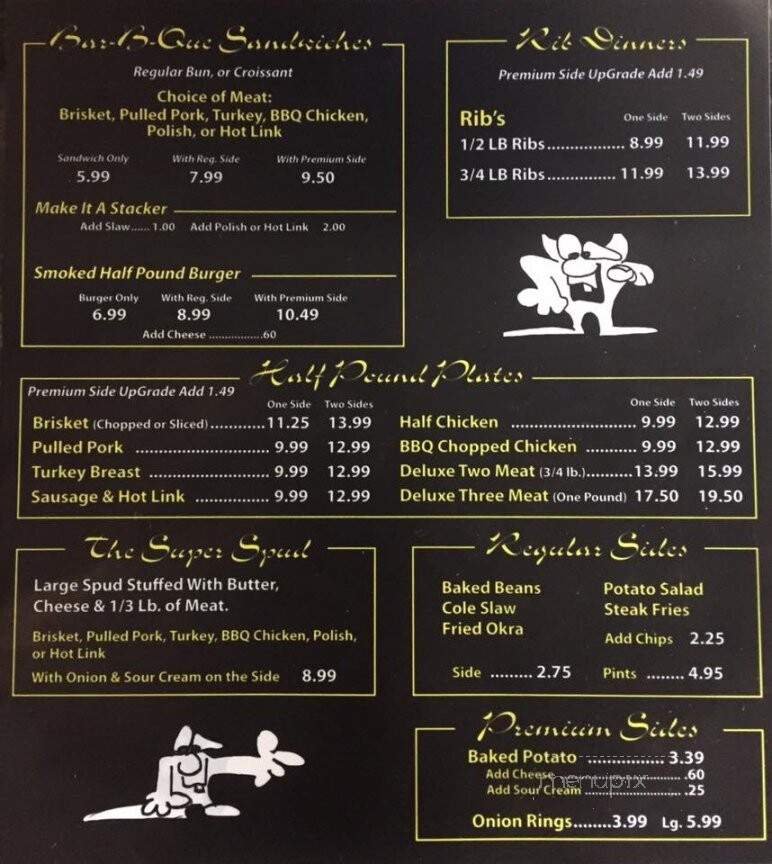 Bar-B-Que Sandwiches
Regular Bun, or Croissant
Choice of Meat:
Brisket, Pulled Pork, Turkey, BBQ Chicken,
Polish, or Hot Link
Sandwich Only With Reg. Side With Premium Side
5.99 7.99 9.50
Make It A Stacker
Add Slaw...... 1.00 Add Polish or Hot Link 2.00
Smoked Half Pound Burger
Burger Only With Reg. Side With Premium Side
6.99 8.99 10.49
Add Cheese .................60
Rib Dinners
Premium Side UpGrade Add 1.49
Rib's One Side Two Sides
1/2 LB Ribs.................. 8.99 11.99
3/4 LB Ribs................ 11.99 13.99
Half Pound Plates
Premium Side UpGrade Add 1.49
One Side Two Sides
Brisket (Chopped or Sliced)............11.25 13.99
Pulled Pork ................................ 9.99 12.99
Turkey Breast ............................ 9.99 12.99
Sausage & Hot Link ................. 9.99 12.99
One Side Two Sides
Half Chicken ............................. 9.99 12.99
BBQ Chopped Chicken ............ 9.99 12.99
Deluxe Two Meat (3/4 lb.)...........13.99 15.99
Deluxe Three Meat (One Pound) 17.50 19.50
The Super Spud
Large Spud Stuffed With Butter,
Cheese & 1/3 Lb. of Meat.
Brisket, Pulled Pork, Turkey, BBQ Chicken, Polish,
or Hot Link
With Onion & Sour Cream on the Side 8.99
Regular Sides
Baked Beans
Cole Slaw
Fried Okra
Potato Salad
Steak Fries
Add Chips 2.25
Side ......... 2.75 Pints ........ 4.95
Premium Sides
Baked Potato .................. 3.39
Add Cheese .................................. .60
Add Sour Cream ........................... .25
Onion Rings........3.99 Lg. 5.99
menupix